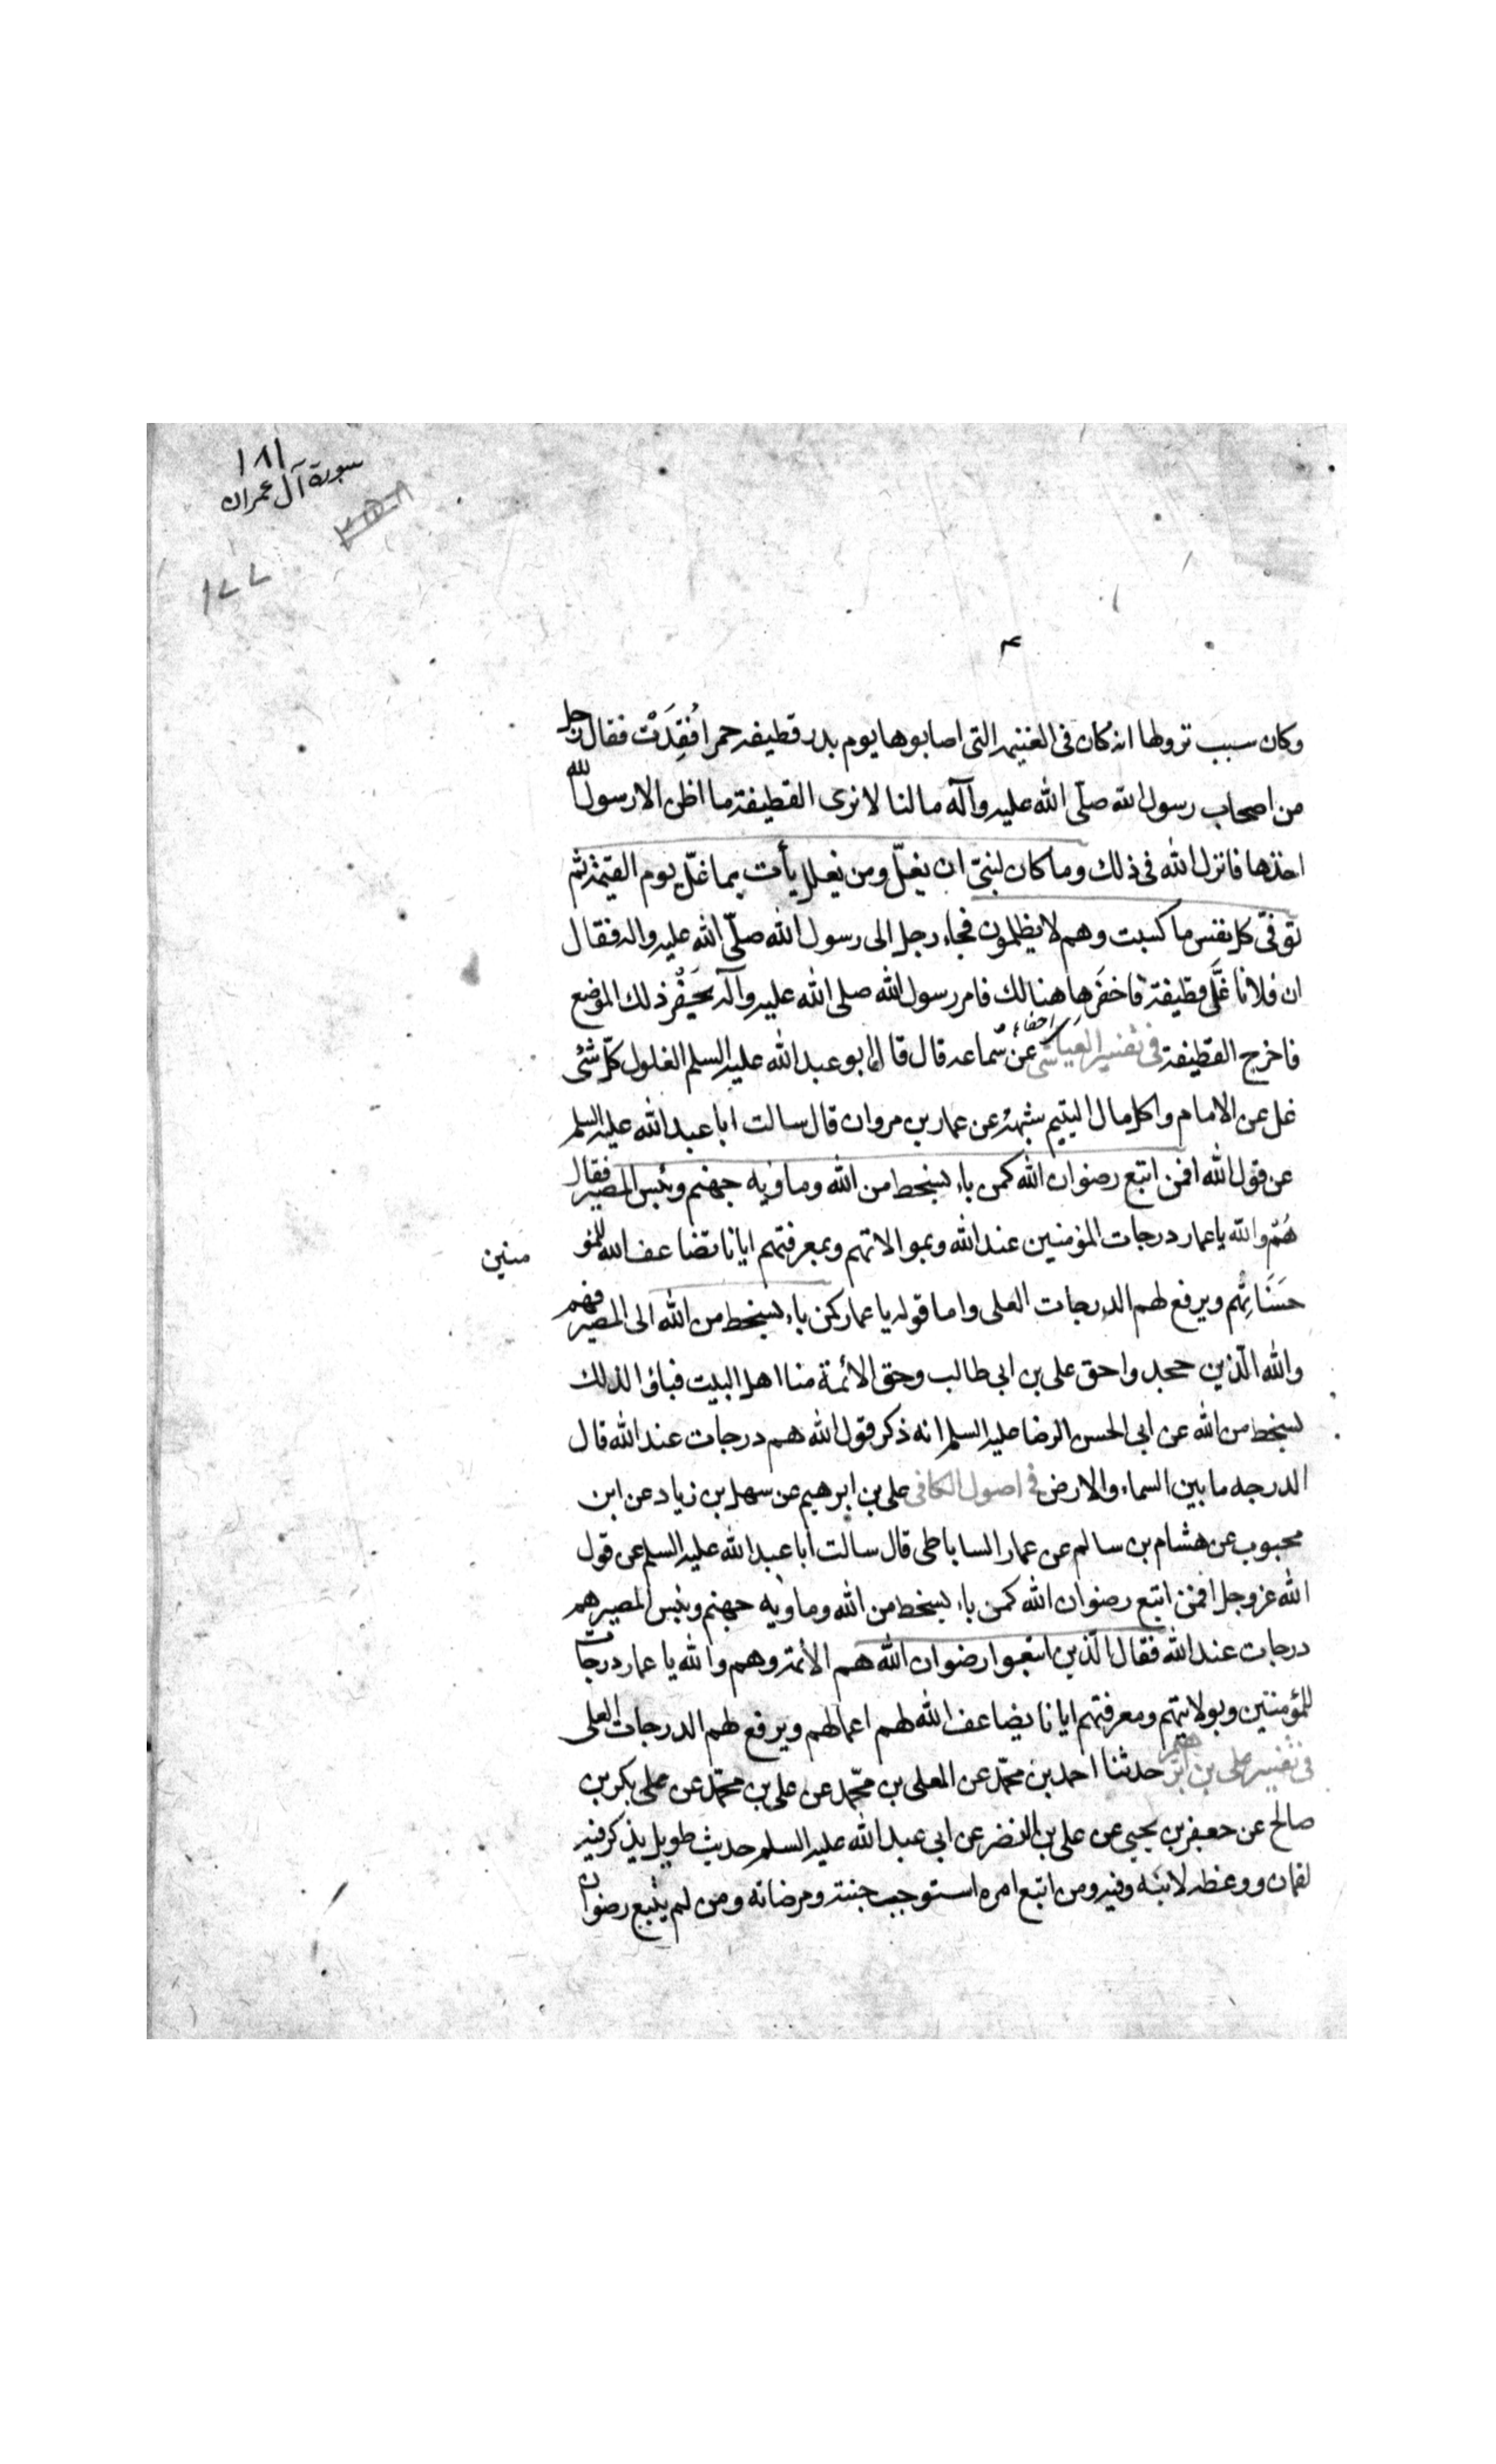 ١٨١
سورة آل عمران
٣٥٨
١٧٧
وكان سبب نزولها انه كان فى الغنيمه التى اصابوها يوم بدر قطيفه حمرا فُقِدَتْ فقال رجل
من اصحاب رسول الله صلّى الله عليه وآله ما لنا لا نرى القطيفة ما اظن الا رسول الله
اخذها فانزل الله فى ذلك وما كان لنبىّ ان يغلّ ومن يغلل يأت بما غلّ يوم القيمة ثم
توفّى كل نفس ما كسبت وهم لا يظلمون فجاء رجل الى رسول الله صلّى الله عليه واله فقال
ان فلانا غَلَّ قطيفة فاحفَرها هنالك فامر رسول الله صلى الله عليه وآله بحَفْر ذلك الموضع
فاخرج القطيفة فى تفسير العياشى عن سَماعه قال قال ابو عبد الله عليه السلم الغلول كلّ شئى
غل عن الامام واكل مال اليتيم شبهة عن عمار بن مروان قال سالت ابا عبد الله عليه السلم
عن قول الله افمن اتبع رضوان الله كمن باء بسخط من الله وماويه جهنم وبئس المصير فقال
هُمْ والله يا عمار درجات المؤمنين عند الله وبموالاتهم وبمعرفتهم ايانا تضاعف الله للمؤ
منين
حَسَنَاتِهم ويرفع لهم الدرجات العلى واما قوله يا عمار كمن باء بسخط من الله الى المصير فهم
والله الّذين جحدوا حق على بن ابى طالب وحق الائمة منا اهل البيت فباؤا لذلك
بسخط من الله عن ابى الحسن الرضا عليه السلم انه ذكر قول الله هم درجات عند الله قال
الدرجه ما بين السماء والارض فى اصول الكافى على بن ابرهيم عن سهل بن زياد عن ابن
محبوب عن هشام بن سالم عن عمار الساباطى قال سالت أبا عبد الله عليه السلم عن قول
الله عز وجل افمن اتبع رضوان الله كمن باء بسخط من الله وماويه جهنم وبئس المصير هم
درجات عند الله فقال الّذين اتبعوا رضوان الله هم الائمة وهم والله يا عمار درجات
للمؤمنين وبولايتهم ومعرفتهم ايانا يضاعف الله لهم اعمالهم ويرفع لهم الدرجات العلى
فى تفسير على بن ابرهيم حدثنا احمد بن محمّد عن المعلى بن محمّد عن على بن محمّد عن على بكر بن
صالح عن جعفر بن يحيى عن على بن النضر عن ابى عبد الله عليه السلم حديث طويل يذكر فيه
لقمان ووعظه لابنه وفيه ومن اتبع امره استوجب جنته ومرضاته ومن لم يتبع رضوان